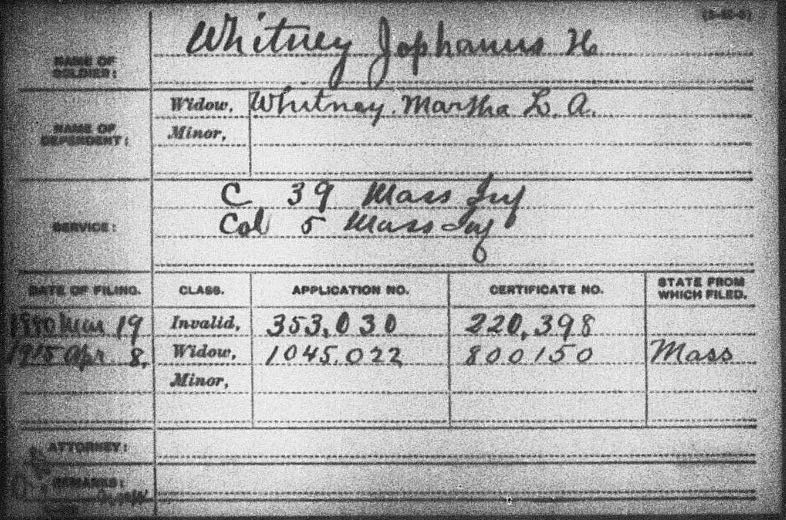 NAME OF SOLDIER: Whitney Jophanus H
NAME OF DEPENDENT: Widow, Whitney. Martha L. A.
Minor,
SERVICE: C 39 Mass Inf
Col 5 Mass Inf
DATE OF FILING. CLASS. APPLICATION NO. CERTIFICATE NO. STATE FROM WHICH FILED.
Mar 19 Invalid, 353,030 220,398
1915 Apr 8, Widow, 1045,022 800150 Mass
Minor,
ATTORNEY:
REMARKS: